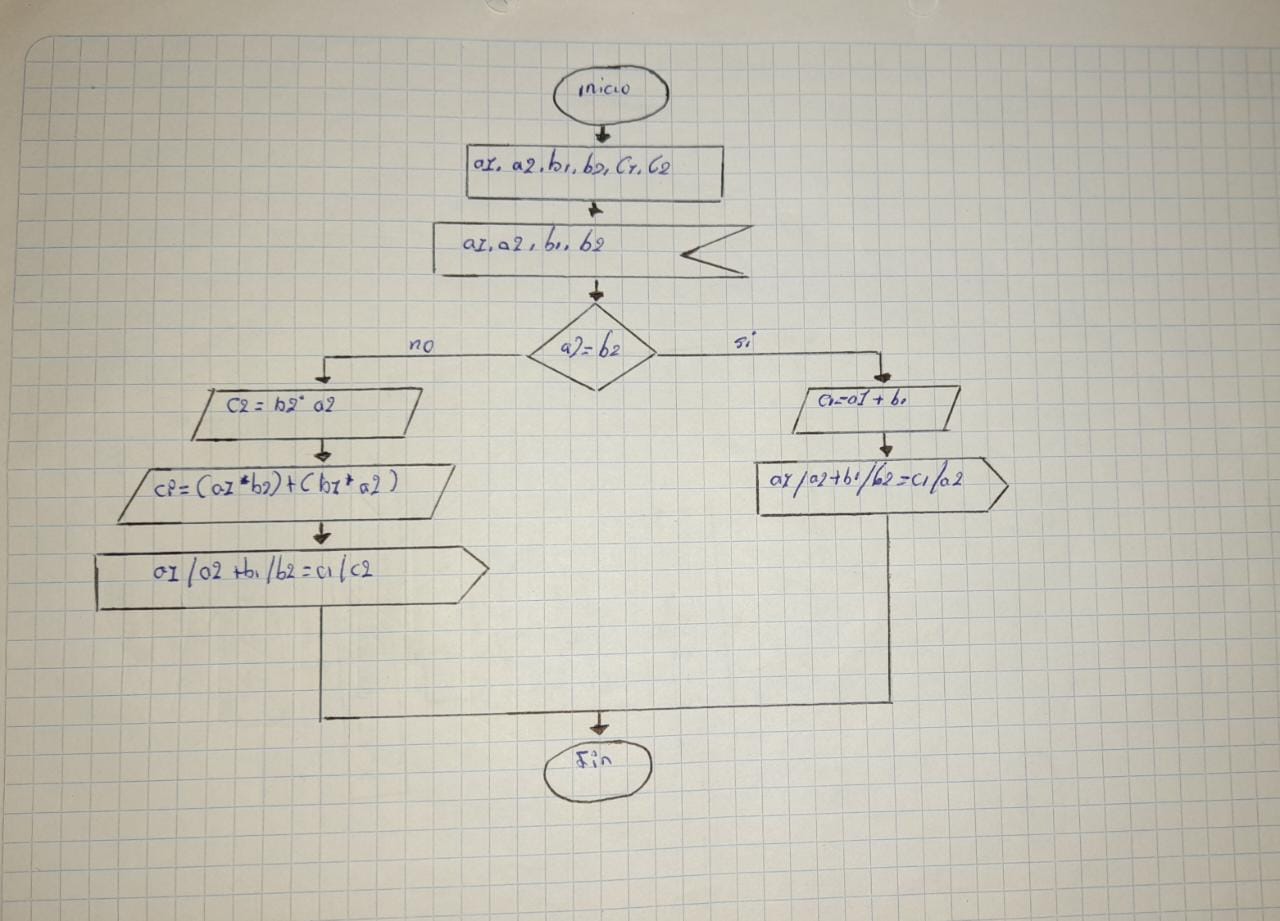 inicio
a1, a2, b1, b2, c1, c2
a1, a2, b1, b2
a2=b2
no
si
c2 = b2* a2
c1=a1 + b1
c1=(a1*b2)+(b1* a2)
a1/a2+b1/b2=c1/a2
a1/a2 +b1/b2=c1/c2
Fin